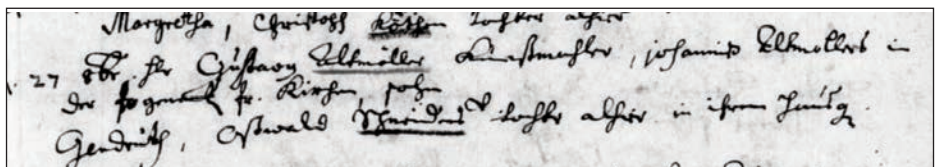 Margretha, Christoff Köthen tochter alhier
27 8br. Hr Gustavg Altmöller Kunstmahler, johanniß Altmollers in
der so genant fr. Kirchen, sohn
Gendruth, Oßwald Schneiders tochter alhier in ihrem Hauß.